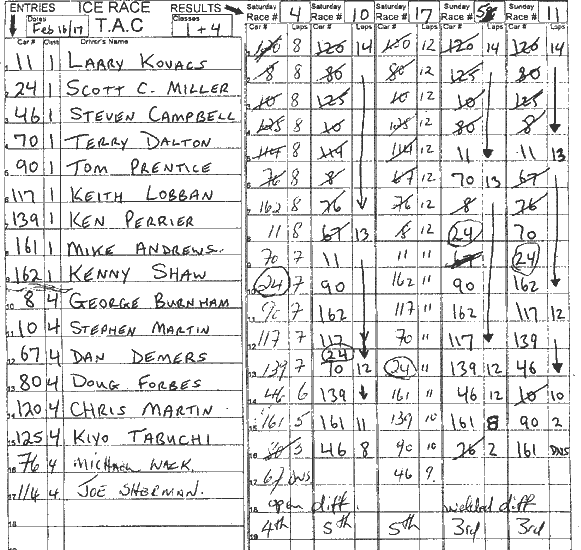 ENTRIES ICE RACE RESULTS Saturday Race # 4 Saturday Race # 10 Saturday Race # 17 Sunday Race # 5 Sunday Race # 11
Dates Feb 16/17 T.A.C Classes 1 + 4 Car # Laps Car # Laps Car # Laps Car # Laps Car # Laps
Car # Class Driver's Name
1 11 1 LARRY KOVACS 120 8 120 14 120 12 120 14 120 14
2 24 1 SCOTT C. MILLER 8 8 80 80 12 125 80
3 46 1 STEVEN CAMPBELL 10 8 125 10 12 10 125
4 70 1 TERRY DALTON 125 8 10 125 12 80 8
5 90 1 TOM PRENTICE 114 8 114 114 12 11 11 13
6 117 1 KEITH LOBBAN 76 8 8 67 12 70 13 67
7 139 1 KEN PERRIER 162 8 76 76 12 8 76
8 161 1 MIKE ANDREWS. 11 8 67 13 8 12 24 70
9 162 1 KENNY SHAW 70 7 11 11 11 67 24
10 8 4 GEORGE BURNHAM 24 7 90 162 11 90 162
11 10 4 STEPHEN MARTIN 90 7 162 117 11 162 117 12
12 67 4 DAN DEMERS 117 7 117 70 11 117 139
13 80 4 DOUG FORBES 139 7 24 70 12 24 11 139 12 46
14 120 4 CHRIS MARTIN 46 6 139 161 11 46 12 10 10
15 125 4 KIYO TABUCHI 161 5 161 11 139 10 161 8 90 2
16 76 4 MICHAEL WACK. 80 3 46 8 90 10 76 2 161 DNS
17 114 4 JOE SHERMAN. 67 DNS 46 9.
18 open diff. welded diff
19 4th 5th 5th 3rd 3rd